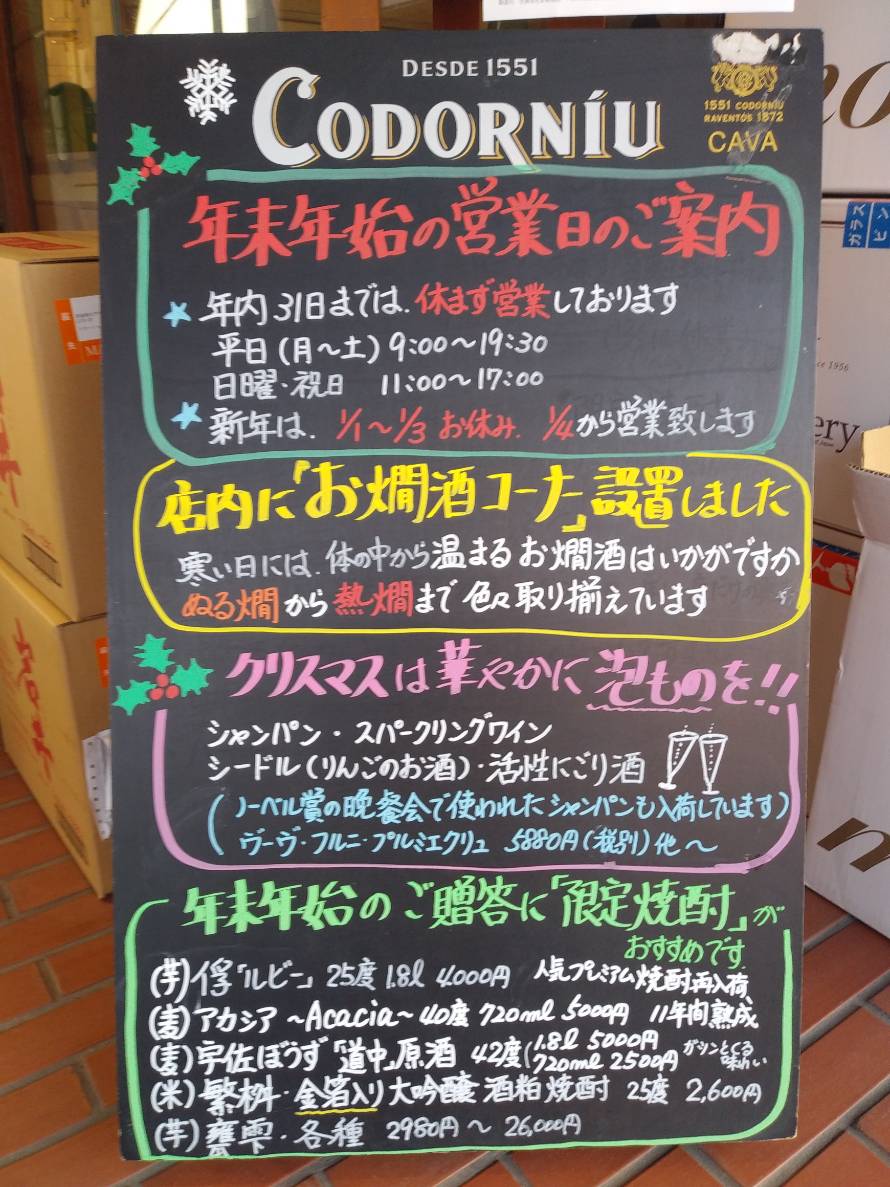 DESDE 1551
CODORNÍU
1551 CODORNÍU
RAVENTÓS 1872
CAVA
年末年始の営業日のご案内
年内31日までは、休まず営業しております
平日(月~土) 9:00~19:30
日曜・祝日 11:00~17:00
新年は、1/1~1/3 お休み、1/4から営業致します
店内に「お燗酒コーナー」設置しました
寒い日には、体の中から温まるお燗酒はいかがですか
ぬる燗から熱燗まで色々取り揃えています
クリスマスは華やかに泡ものを!!
シャンパン・スパークリングワイン
シードル(りんごのお酒)・活性にごり酒
(ノーベル賞の晩餐会で使われたシャンパンも入荷しています)
ヴーヴ・フルニ・プルミエクリュ 5880円(税別)他~
年末年始のご贈答に「限定焼酎」が
おすすめです
(芋)俘「ルビー」25度 1.8l 4.000円 人気プレミアム焼酎再入荷、
(麦)アカシア ~Acacia~ 40度 720ml 5000円 11年間熟成
(麦)宇佐ぼうず「道中」原酒 42度(1.8l 5000円
720ml 2500円 ガツンとくる
味わい
(米)繁桝・金箔入り大吟醸酒粕焼酎 25度 2,600円
(芋)甕雫・各種 2980円~26,000円
ガラス
ビン
since 1956
ery